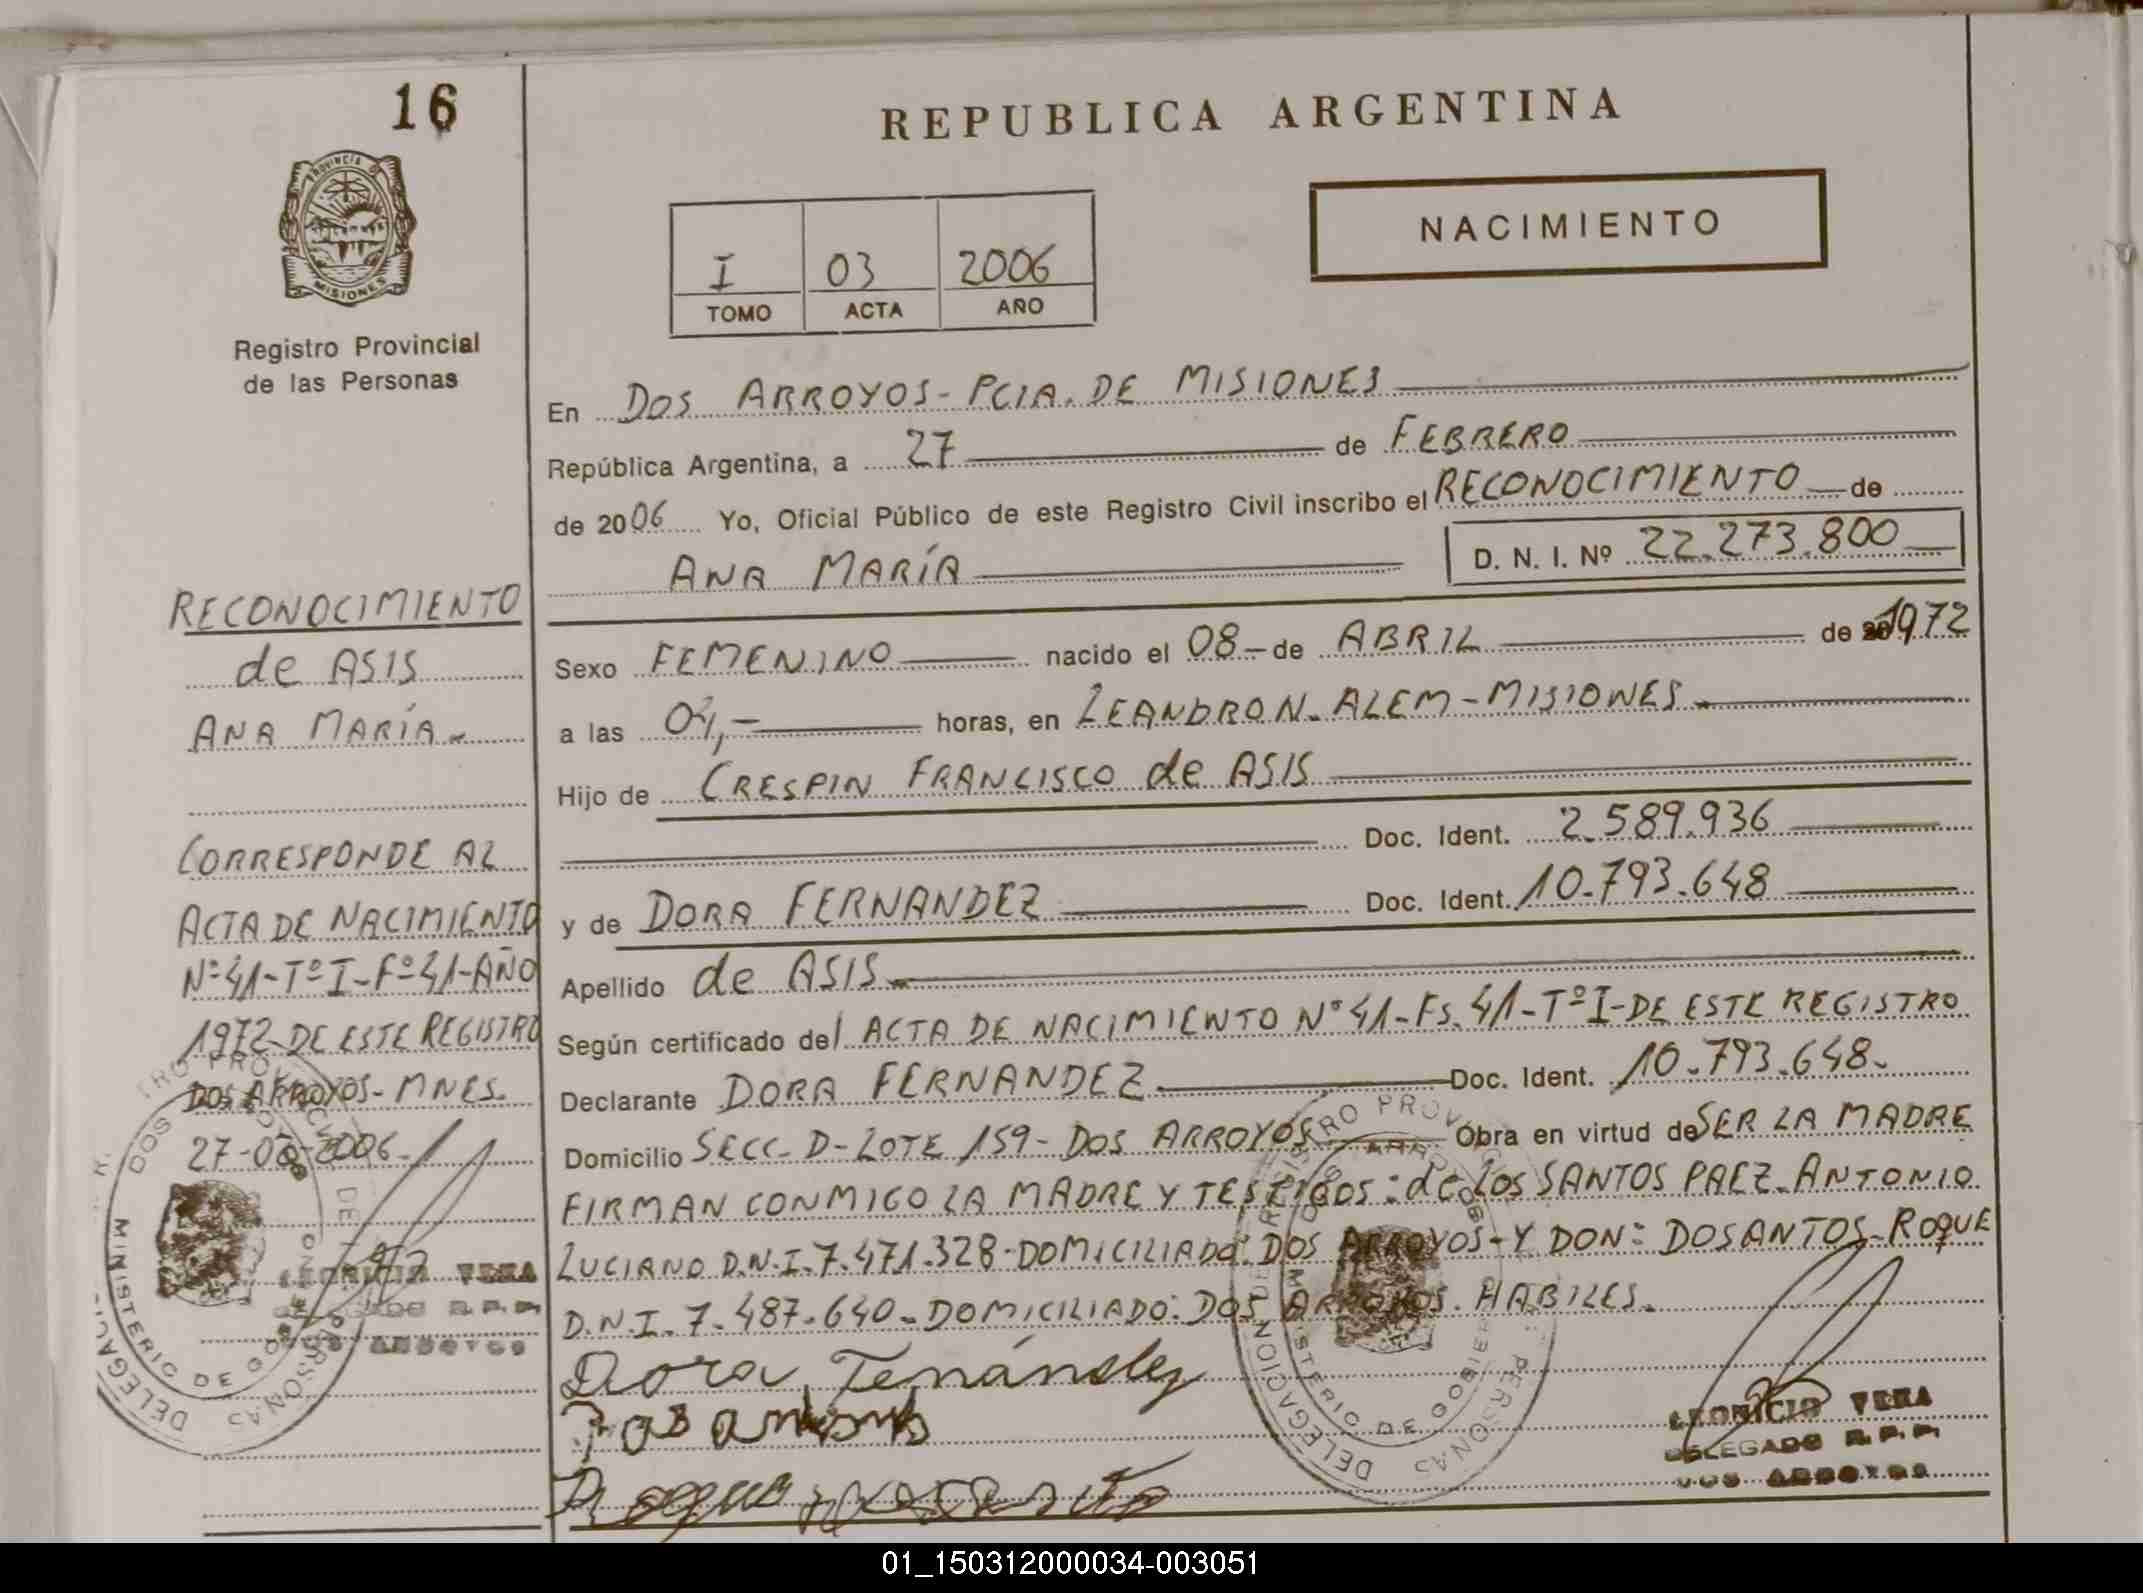 16
PROVINCIA D
MISIONES
Registro Provincial
de las Personas
RECONOCIMIENTO
de ASIS
ANA MARÍA.-
CORRESPONDE AL
ACTA DE NACIMIENTO
Nº41-TºI-Fº41-AÑO
1972-DE ESTE REGISTRO
DOS ARROYOS-MNES.
27-02-2006.
REPUBLICA ARGENTINA
NACIMIENTO
I 03 2006
TOMO ACTA AÑO
En DOS ARROYOS-PCIA. DE MISIONES
República Argentina, a 27 de FEBRERO
de 2006 Yo, Oficial Público de este Registro Civil inscribo el RECONOCIMIENTO de
ANA MARÍA D. N. I. Nº 22.273.800
Sexo FEMENINO nacido el 08- de ABRIL de 1972
a las 04,- horas, en LEANDRO N. ALEM-MISIONES.
Hijo de CRESPIN FRANCISCO de ASIS
Doc. Ident. 2.589.936
y de DORA FERNANDEZ Doc. Ident. 10.793.648
Apellido de ASIS.
Según certificado del ACTA DE NACIMIENTO Nº41-Fs.41-TºI-DE ESTE REGISTRO
Declarante DORA FERNANDEZ. Doc. Ident. 10.793.648.
Domicilio SECC-D-LOTE 159-DOS ARROYOS Obra en virtud de SER LA MADRE
FIRMAN CONMIGO LA MADRE Y TESTIGOS: de LOS SANTOS PAEZ-ANTONIO
LUCIANO D.N.I.7.471.328-DOMICILIADO: DOS ARROYOS-Y DON: DOSANTOS-ROQUE
D.N.I. 7.487.640-DOMICILIADO: DOS ARROYOS. HABILES.
Dora
LEONICIO VERA
DELEGADO R.P.P.
DOS ARROYOS
LEONICIO VERA
DELEGADO R.P.P.
DOS ARROYOS
MINISTERIO DE GOBIERNO
DELEGACION DOS ARROYOS
01_150312000034-003051